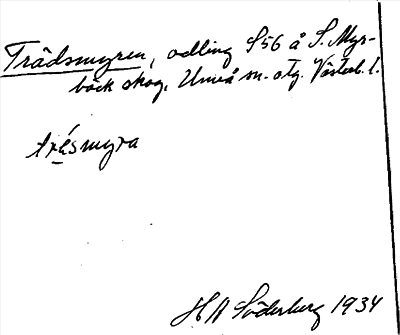 Trådsmyren, odling S56 å S. Myr-
bäck skog, Umeå sn. otg. Västerb. l.
trésmyra
H A Söderberg 1934